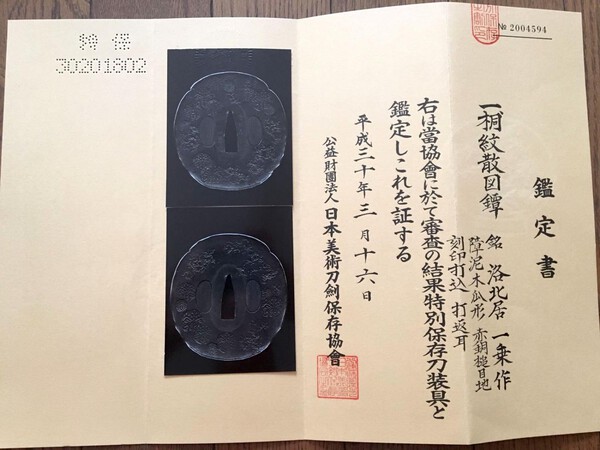 № 2004594
鑑定書
一、桐紋散図鐔 銘 洛北居一乗作
障泥木瓜形 赤銅槌目地
刻印打込 打返耳
右は當協會に於て審査の結果特別保存刀装具と
鑑定しこれを証する
平成三十年三月十六日
公益財團法人 日本美術刀劍保存協會
特保
30201802